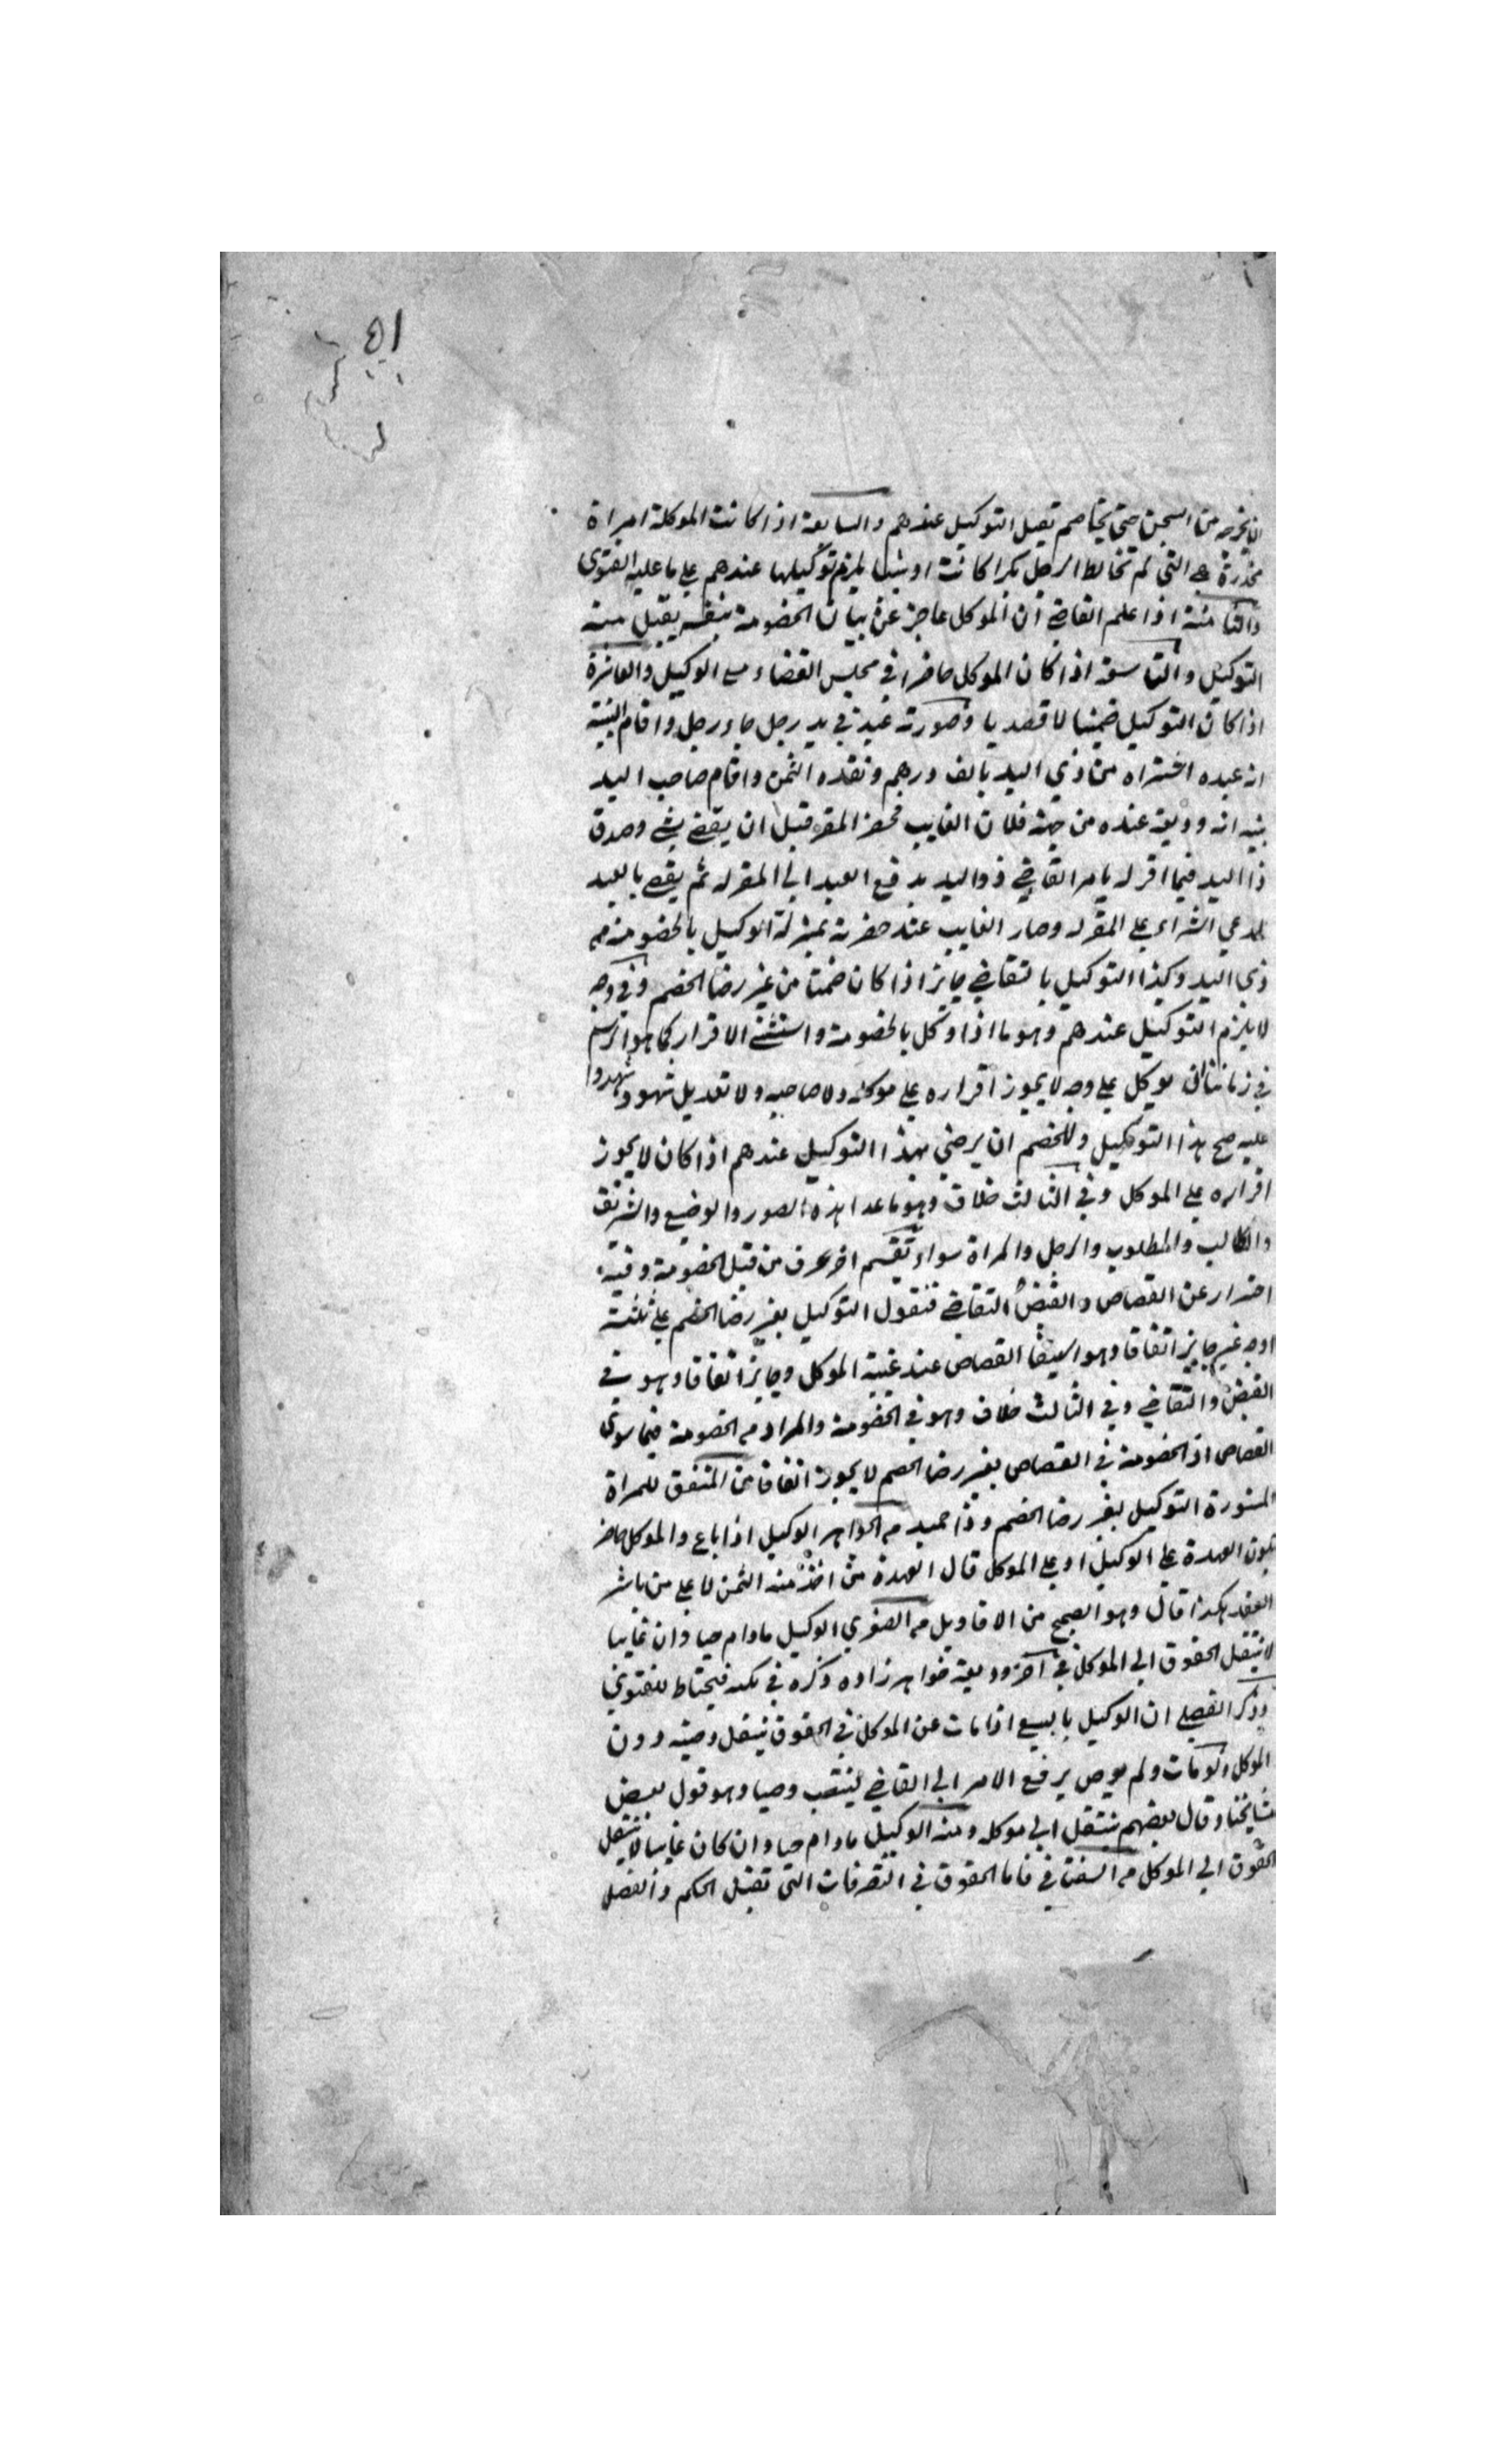 لا يخرجه من السجن حتى يخاصم يقبل التوكيل عندهم والسابعة اذا كانت الموكلة امراة
مخدرة هي التي لم تخالط الرجل بكرا كانت او ثيبا يلزم توكيلها عندهم على ما عليه الفتوى
والثامنة اذا علم القاضي ان الموكل عاجز عن بيان الخصومة بنفسه يقبل منه
التوكيل والتاسعة اذا كان الموكل حاضرا في مجلس القضاء مع الوكيل والعاشرة
اذا كان التوكيل ضمنيا لا قصديا وصورته عبد في يد رجل جاء رجل واقام البينة
انه عبده اشتراه من ذي اليد بالف درهم ونقده الثمن واقام صاحب اليد
بينه انه وديعة عنده من جهة فلان الغايب فحضر المقر قبل ان يقضي بشي وصدق
ذا اليد فيما اقر له يامر القاضي ذو اليد بدفع العبد الى المقر له ثم يقضي بالعبد
لمدعي الشراء على المقر له وصار الغايب عند حضرته بمنزلة الوكيل بالخصومة مع
ذي اليد وكذا التوكيل بالتقاضي جايز اذا كان ضمنا من غير رضا الخصم وفي وجه
لا يلزم التوكيل عندهم وهو ما اذا وكل بالخصومة واستثنى الاقرار كما هو الرسم
في زماننا يوكل على وجه لا يجوز اقراره على موكله ولا صاحبه ولا تعديل شهود شهدوا
عليه صح هذا التوكيل وللخصم ان يرضى بهذا التوكيل عندهم اذا كان لا يجوز
اقراره على الموكل وفي الثالث خلاف وهو ما عدا هذه الصور والوضيع والشريف
والطالب والمطلوب والرجل والمراة سواء من قبل الخصومة وفيه
احتراز عن القصاص والقبض التقاضي فنقول التوكيل بغير رضا الخصم على ثلثة
اوجه غير جايز اتفاقا وهو استيفا القصاص عند غيبة الموكل وجايز اتفاقا وهو في
القبض والتقاضي وفي الثالث خلاف وهو في الخصومة والمراد من الخصومة فيما سوى
القصاص اذ الخصومة في القصاص بغير رضا الخصم لا يجوز اتفاقا من المتفق للمراة
المستورة التوكيل بغير رضا الخصم من الجواهر الوكيل اذا باع والموكل حاضر
تكون العهدة على الوكيل او على الموكل قال العهدة من اخذ منه الثمن لا على من باشر
العقد هكذا قال وهو الصحيح من الاقاويل من الصغرى الوكيل مادام حيا وان غايبا
لا ينتقل الحقوق الى الموكل في اخر وديعة خواهر زاده ذكره في فيحتاط للفتوى
وذكر الفضلي ان الوكيل بالبيع اذا مات عن الموكل في الحقوق ينتقل وصيه دون
الموكل ولو مات ولم يوص يرفع الامر الى القاضي لينصب وصيا وهو قول بعض
مشايخنا وقال بعضهم ينتقل الى موكله ومنه الوكيل مادام حيا وان كان غايبا لا ينتقل
الحقوق الى الموكل من السغناقي فاما الحقوق في التصرفات التي تقبل الحكم